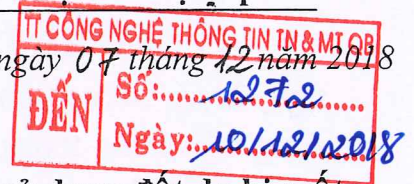 TT CÔNG NGHỆ THÔNG TIN TN & MT QB
ngày 07 tháng 12 năm 2018
ĐẾN
Số:.....1272.....
Ngày:..10/12/2018